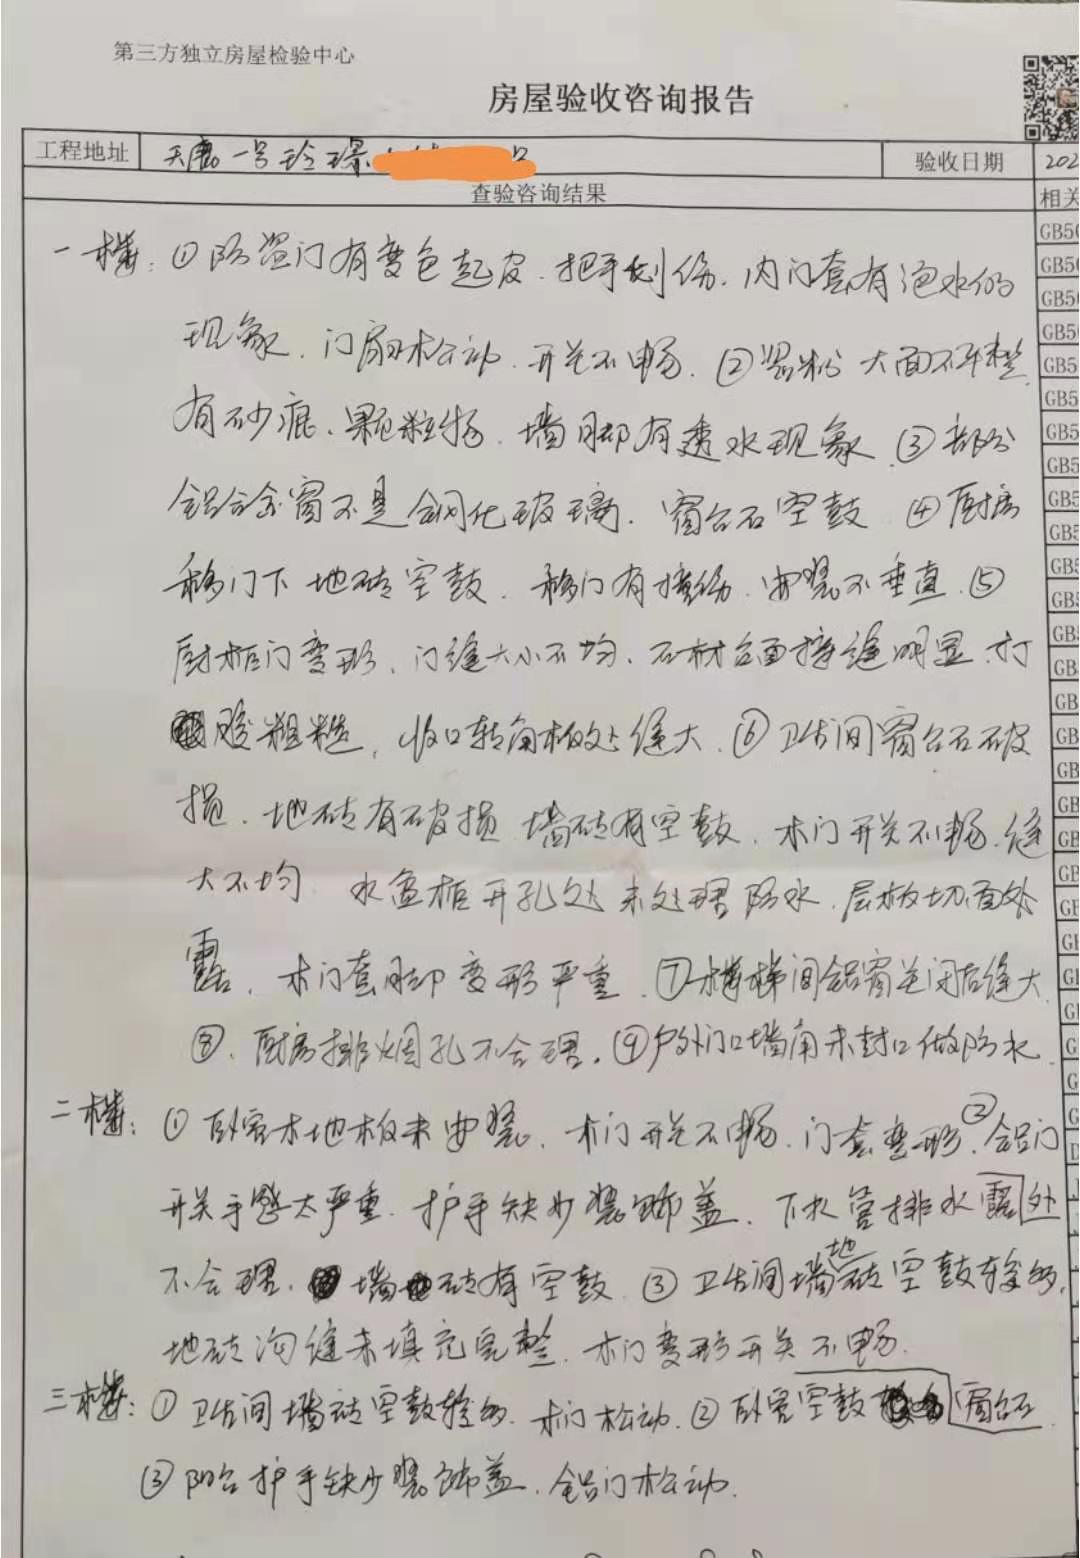 第三方独立房屋检验中心
房屋验收咨询报告
工程地址 天鹿一号玲珑 验收日期 202
查验咨询结果 相关
一楼：①防盗门有变色起皮、把手划伤、内门套有泡水的
现象、门扇松动、开关不畅、②墙粉大面不平整
有砂痕、颗粒物、墙脚有透水现象、③部分
铝合金窗不是钢化玻璃、窗台石空鼓 ④厨房
移门下地砖空鼓、移门有撞伤、安装不垂直、⑤
厨柜门变形、门缝大小不均、石材台面接缝明显、打
胶粗糙、收口转角板处缝大、⑥卫生间窗台石破
损、地砖有破损 墙砖有空鼓、木门开关不畅、缝
大不均 水盆柜开孔处未处理防水、层板切面外
露、木门套脚变形严重、⑦楼梯间铝窗关闭后缝大
⑧、厨房排烟孔不合理、⑨户外门口墙角未封口做防水
二楼：①卧室木地板未安装、木门开关不畅、门套变形 ②铝门
开关手感太严重、护手缺少装饰盖、下水管排水露处
不合理、墙砖有空鼓 ③卫生间墙地砖空鼓较多，
地砖沟缝未填充完整、木门变形开关不畅.
三楼：①卫生间墙砖空鼓较多、木门松动、②卧室空鼓 窗台石
③阳台护手缺少装饰盖、铝门松动.
GB50
GB50
GB50
GB50
GB5
GB5
GB5
GB5
GB5
GB5
GB5
GB5
GB5
GB
GB
GB
GB
GB
GB
GB
GB